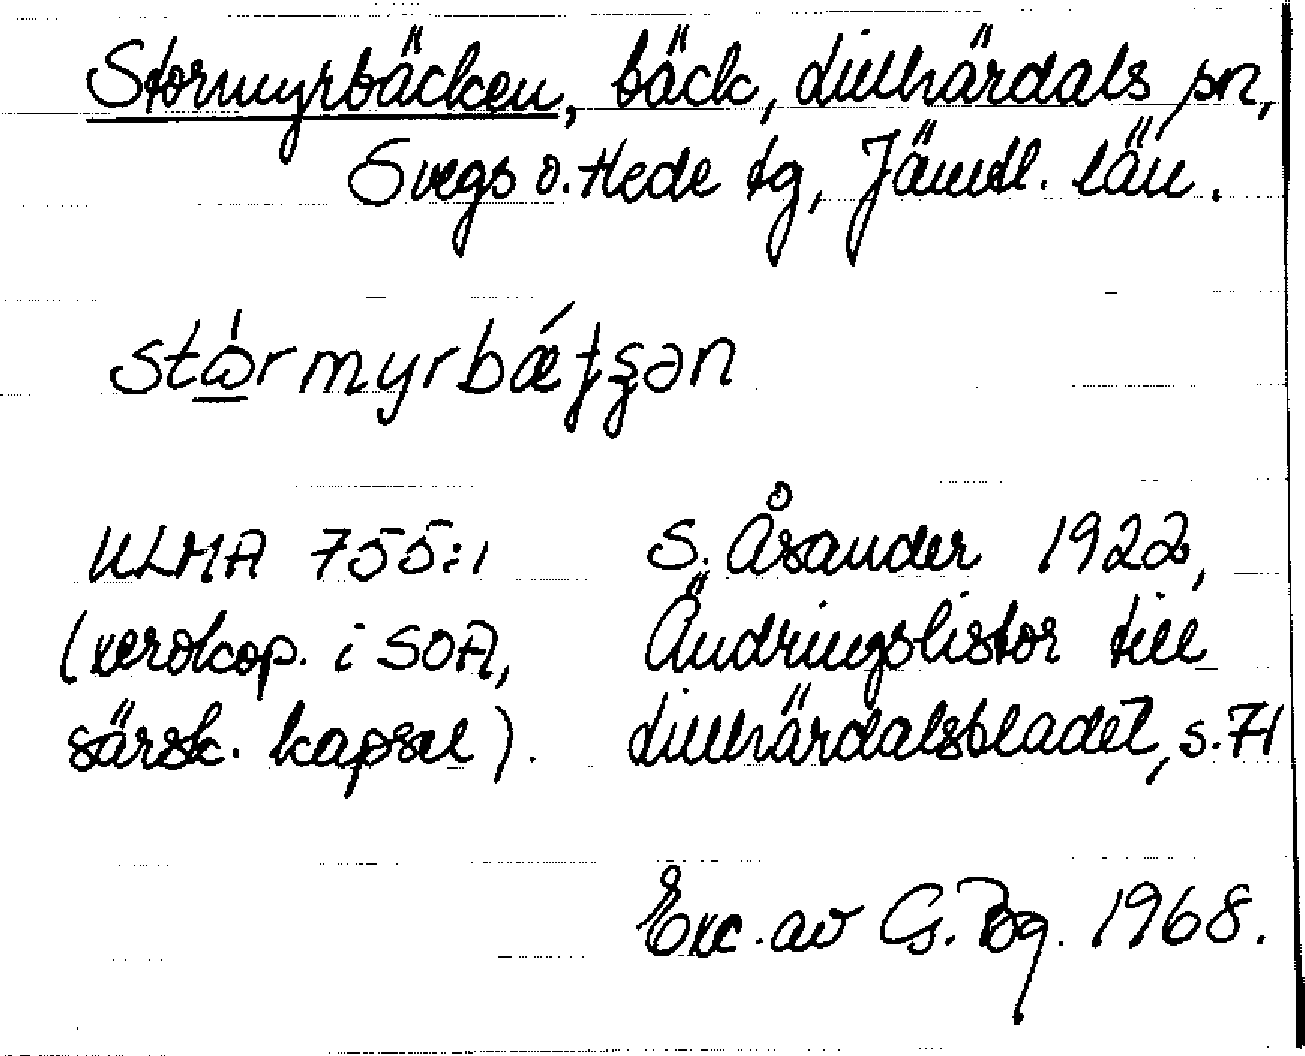 Stormyrbäcken, bäck, Lillhärdals sn,
Svegs o. Hede tg, Jämtl. län.
stɷ̀rmyrbǽʈʂən
ULMA 755:1
(xerokop. i SOA,
särsk. kapsel).
S. Åsander 1922,
Ändringslistor till
Lillhärdalsbladet, s. 71
Exc. av G. Bg. 1968.